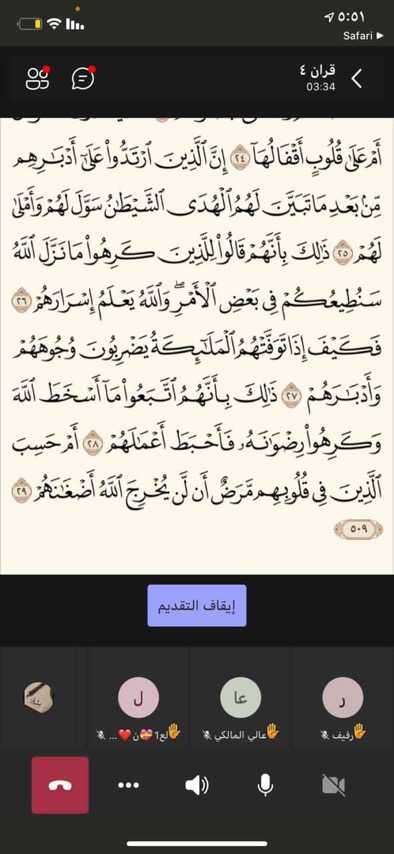 ٥:٥١
Safari
قران ٤
03:34
أَمْ عَلَىٰ قُلُوبٍ أَقْفَالُهَآ ٢٤ إِنَّ ٱلَّذِينَ ٱرْتَدُّوا۟ عَلَىٰٓ أَدْبَـٰرِهِم
مِّنۢ بَعْدِ مَا تَبَيَّنَ لَهُمُ ٱلْهُدَى ٱلشَّيْطَـٰنُ سَوَّلَ لَهُمْ وَأَمْلَىٰ
لَهُمْ ٢٥ ذَٰلِكَ بِأَنَّهُمْ قَالُوا۟ لِلَّذِينَ كَرِهُوا۟ مَا نَزَّلَ ٱللَّهُ
سَنُطِيعُكُمْ فِى بَعْضِ ٱلْأَمْرِ ۖ وَٱللَّهُ يَعْلَمُ إِسْرَارَهُمْ ٢٦
فَكَيْفَ إِذَا تَوَفَّتْهُمُ ٱلْمَلَـٰٓئِكَةُ يَضْرِبُونَ وُجُوهَهُمْ
وَأَدْبَـٰرَهُمْ ٢٧ ذَٰلِكَ بِأَنَّهُمُ ٱتَّبَعُوا۟ مَآ أَسْخَطَ ٱللَّهَ
وَكَرِهُوا۟ رِضْوَٰنَهُۥ فَأَحْبَطَ أَعْمَـٰلَهُمْ ٢٨ أَمْ حَسِبَ
ٱلَّذِينَ فِى قُلُوبِهِم مَّرَضٌ أَن لَّن يُخْرِجَ ٱللَّهُ أَضْغَـٰنَهُمْ ٢٩
٥٠٩
إيقاف التقديم
ر
عا
ل
رفيف
عالي المالكي